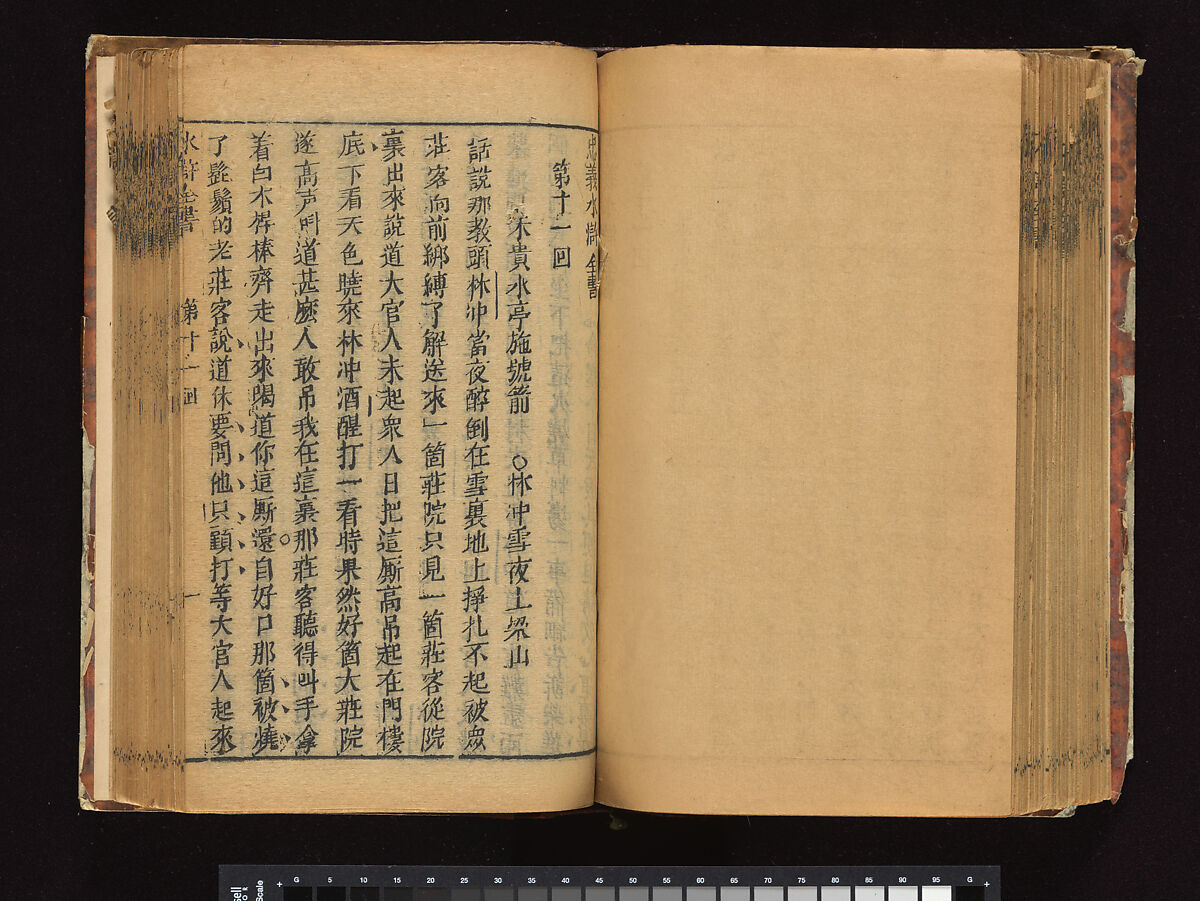 忠義水滸全書
第十一回
朱貴水亭施號箭 ○林冲雪夜上梁山
話說那教頭林冲當夜醉倒在雪裏地上掙扎不起被眾
莊客向前綁縛了解送來一箇莊院只見一箇莊客從院
裏出來說道大官人未起衆人且把這厮高吊起在門樓
底下看天色曉來林冲酒醒打一看時果然好箇大莊院
遂高声呌道甚麽人敢吊我在這裏那莊客聽得叫手拿
着白木桿棒齊走出來喝道你這厮還自好口那箇被燒
了髭鬚的老莊客說道休要問他只顧打等大官人起來
水滸全書 第十一回 一
G 5 10 15 20 25 30 35 40 45 50 55 60 65 70 75 80 85 90 95 G
Scale